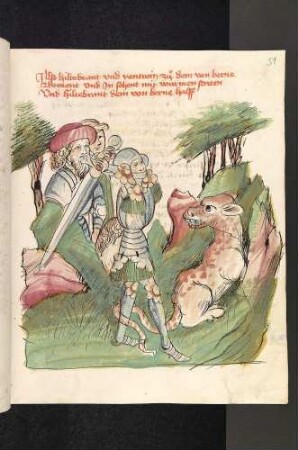 Also hiltebrant und rentwin zů dem von berne
koment und In sahent mit würmen striten
Und hiltebrant dem von berne halff